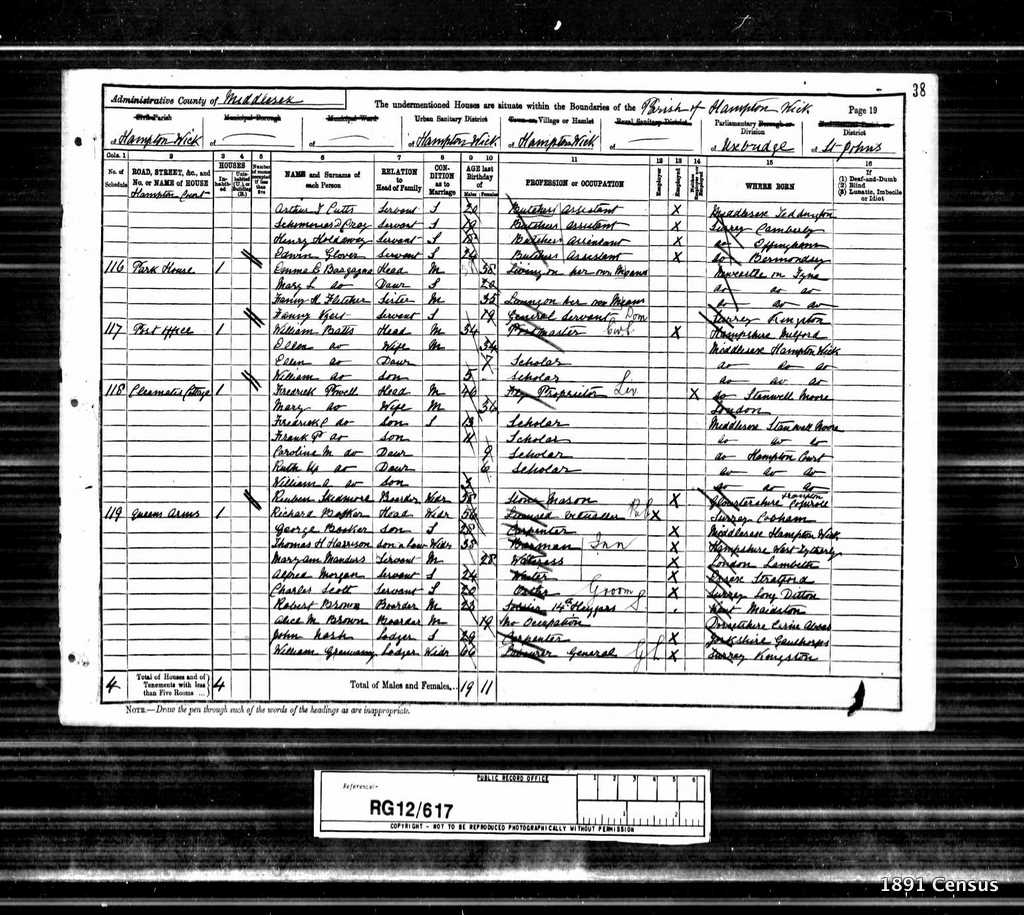 38
Administrative County of Middlesex
The undermentioned Houses are situate within the Boundaries of the Parish of Hampton Wick
Page 19
Civil Parish of Hampton Wick
Municipal Borough of
Municipal Ward of
Urban Sanitary District of Hampton Wick
Town or Village or Hamlet of Hampton Wick
Rural Sanitary District of
Parliamentary Borough or Division of Uxbridge
Ecclesiastical Parish or District of St Johns
Cols. 1 2 3 4 5 6 7 8 9 10 11 12 13 14 15 16
No. of Schedule
ROAD, STREET, &c., and No. or NAME of HOUSE
HOUSES
Inhabited
Uninhabited (U.), or Building (B.)
Number of rooms occupied if less than five
NAME and Surname of each Person
RELATION to Head of Family
CONDITION as to Marriage
AGE last Birthday of
Males Females
PROFESSION or OCCUPATION
Employer
Employed
Neither Employer nor Employed
WHERE BORN
If (1) Deaf-and-Dumb (2) Blind (3) Lunatic, Imbecile or Idiot
Hampton Court
Arthur J Cutts Servant S 20 Butchers Assistant X Middlesex Teddington
Servant S 19 Butchers Assistant X Surrey Camberly
Henry Holdaway Servant S 18 Butchers Assistant X do Effingham
Edwin Glover Servant S 24 Butchers Assistant X do Bermondsey
116 Park House 1 Emma E Head M 58 Living on her own Means Newcastle on Tyne
Mary L do Daur S 20 do do do
Fanny H Fletcher Sister M 35 Living on her own Means do do do
Fanny Servant S 19 General Servant Dom Surrey Kingston
117 Post Office 1 William Batts Head M 54 Postmaster X Hampshire Milford
Ellen do Wife M 54 Middlesex Hampton Wick
Ellen do Daur 7 Scholar do do do
William do Son 5 Scholar do do do
118 Clematis Cottage 1 Fredrick Powell Head M 40 Fly Proprietor X do Stanwell Moore
Mary do Wife M 36 London
Fredrick P do Son S 13 Scholar Middlesex Stanwell Moore
Frank P do Son 11 Scholar do do do
Caroline M do Daur 9 Scholar do Hampton Court
Ruth do Daur 6 Scholar do do do
William A do Son do do do
Reuben Skidmore Boarder Widr 38 Stone Mason X Gloucestershire
119 Queens Arms 1 Richard Booker Head Widr 56 Licensed Victualler X Surrey Cobham
George Booker Son S 28 Carpenter X Middlesex Hampton Wick
Thomas H Harrison Son in Law Widr 38 Barman Inn X Hampshire West Tytherly
Maryann Manders Servant M 28 Waitress X London Lambeth
Alfred Morgan Servant S 24 Waiter X Essex Stratford
Charles Scott Servant S 20 Ostler Groom X Surrey Long Ditton
Robert Brown Boarder M 23 Soldier 14th Kent Maidston
Alice M Brown Boarder M 19 No Occupation Dorsetshire
John Nash Lodger S 29 Carpenter X Yorkshire
William Lodger Widr 66 Labourer General X Surrey Kingston
4 Total of Houses and of Tenements with less than Five Rooms ... 4
Total of Males and Females... 19 11
NOTE.—Draw the pen through such of the words of the headings as are inappropriate.
PUBLIC RECORD OFFICE
Reference:-
RG12/617
COPYRIGHT - NOT TO BE REPRODUCED PHOTOGRAPHICALLY WITHOUT PERMISSION
1891 Census